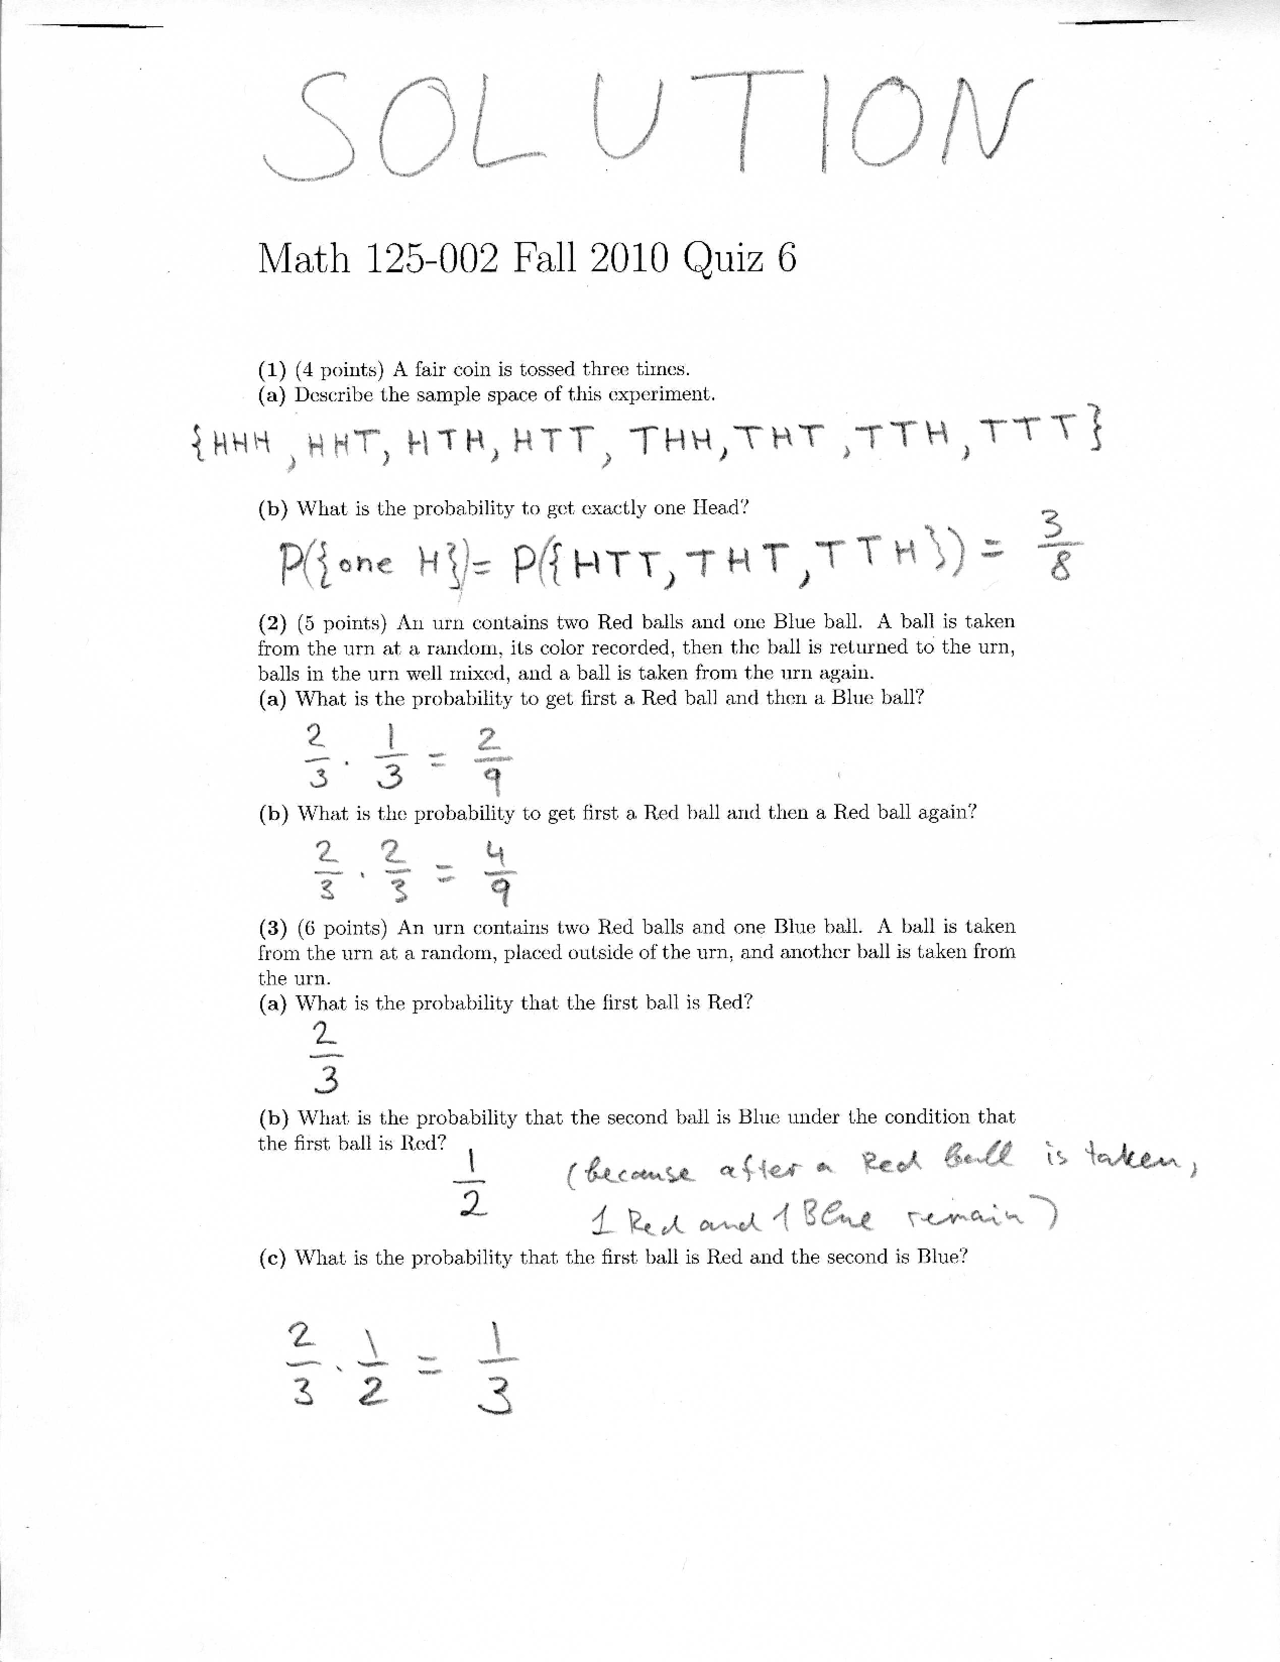 SOLUTION
Math 125-002 Fall 2010 Quiz 6
(1) (4 points) A fair coin is tossed three times.
(a) Describe the sample space of this experiment.
{HHH, HHT, HTH, HTT, THH, THT, TTH, TTT}
(b) What is the probability to get exactly one Head?
P({one H}) = P({HTT, THT, TTH}) = 3/8
(2) (5 points) An urn contains two Red balls and one Blue ball. A ball is taken
from the urn at a random, its color recorded, then the ball is returned to the urn,
balls in the urn well mixed, and a ball is taken from the urn again.
(a) What is the probability to get first a Red ball and then a Blue ball?
2/3 · 1/3 = 2/9
(b) What is the probability to get first a Red ball and then a Red ball again?
2/3 · 2/3 = 4/9
(3) (6 points) An urn contains two Red balls and one Blue ball. A ball is taken
from the urn at a random, placed outside of the urn, and another ball is taken from
the urn.
(a) What is the probability that the first ball is Red?
2/3
(b) What is the probability that the second ball is Blue under the condition that
the first ball is Red?
1/2 (because after a Red ball is taken,
1 Red and 1 Blue remain)
(c) What is the probability that the first ball is Red and the second is Blue?
2/3 · 1/2 = 1/3